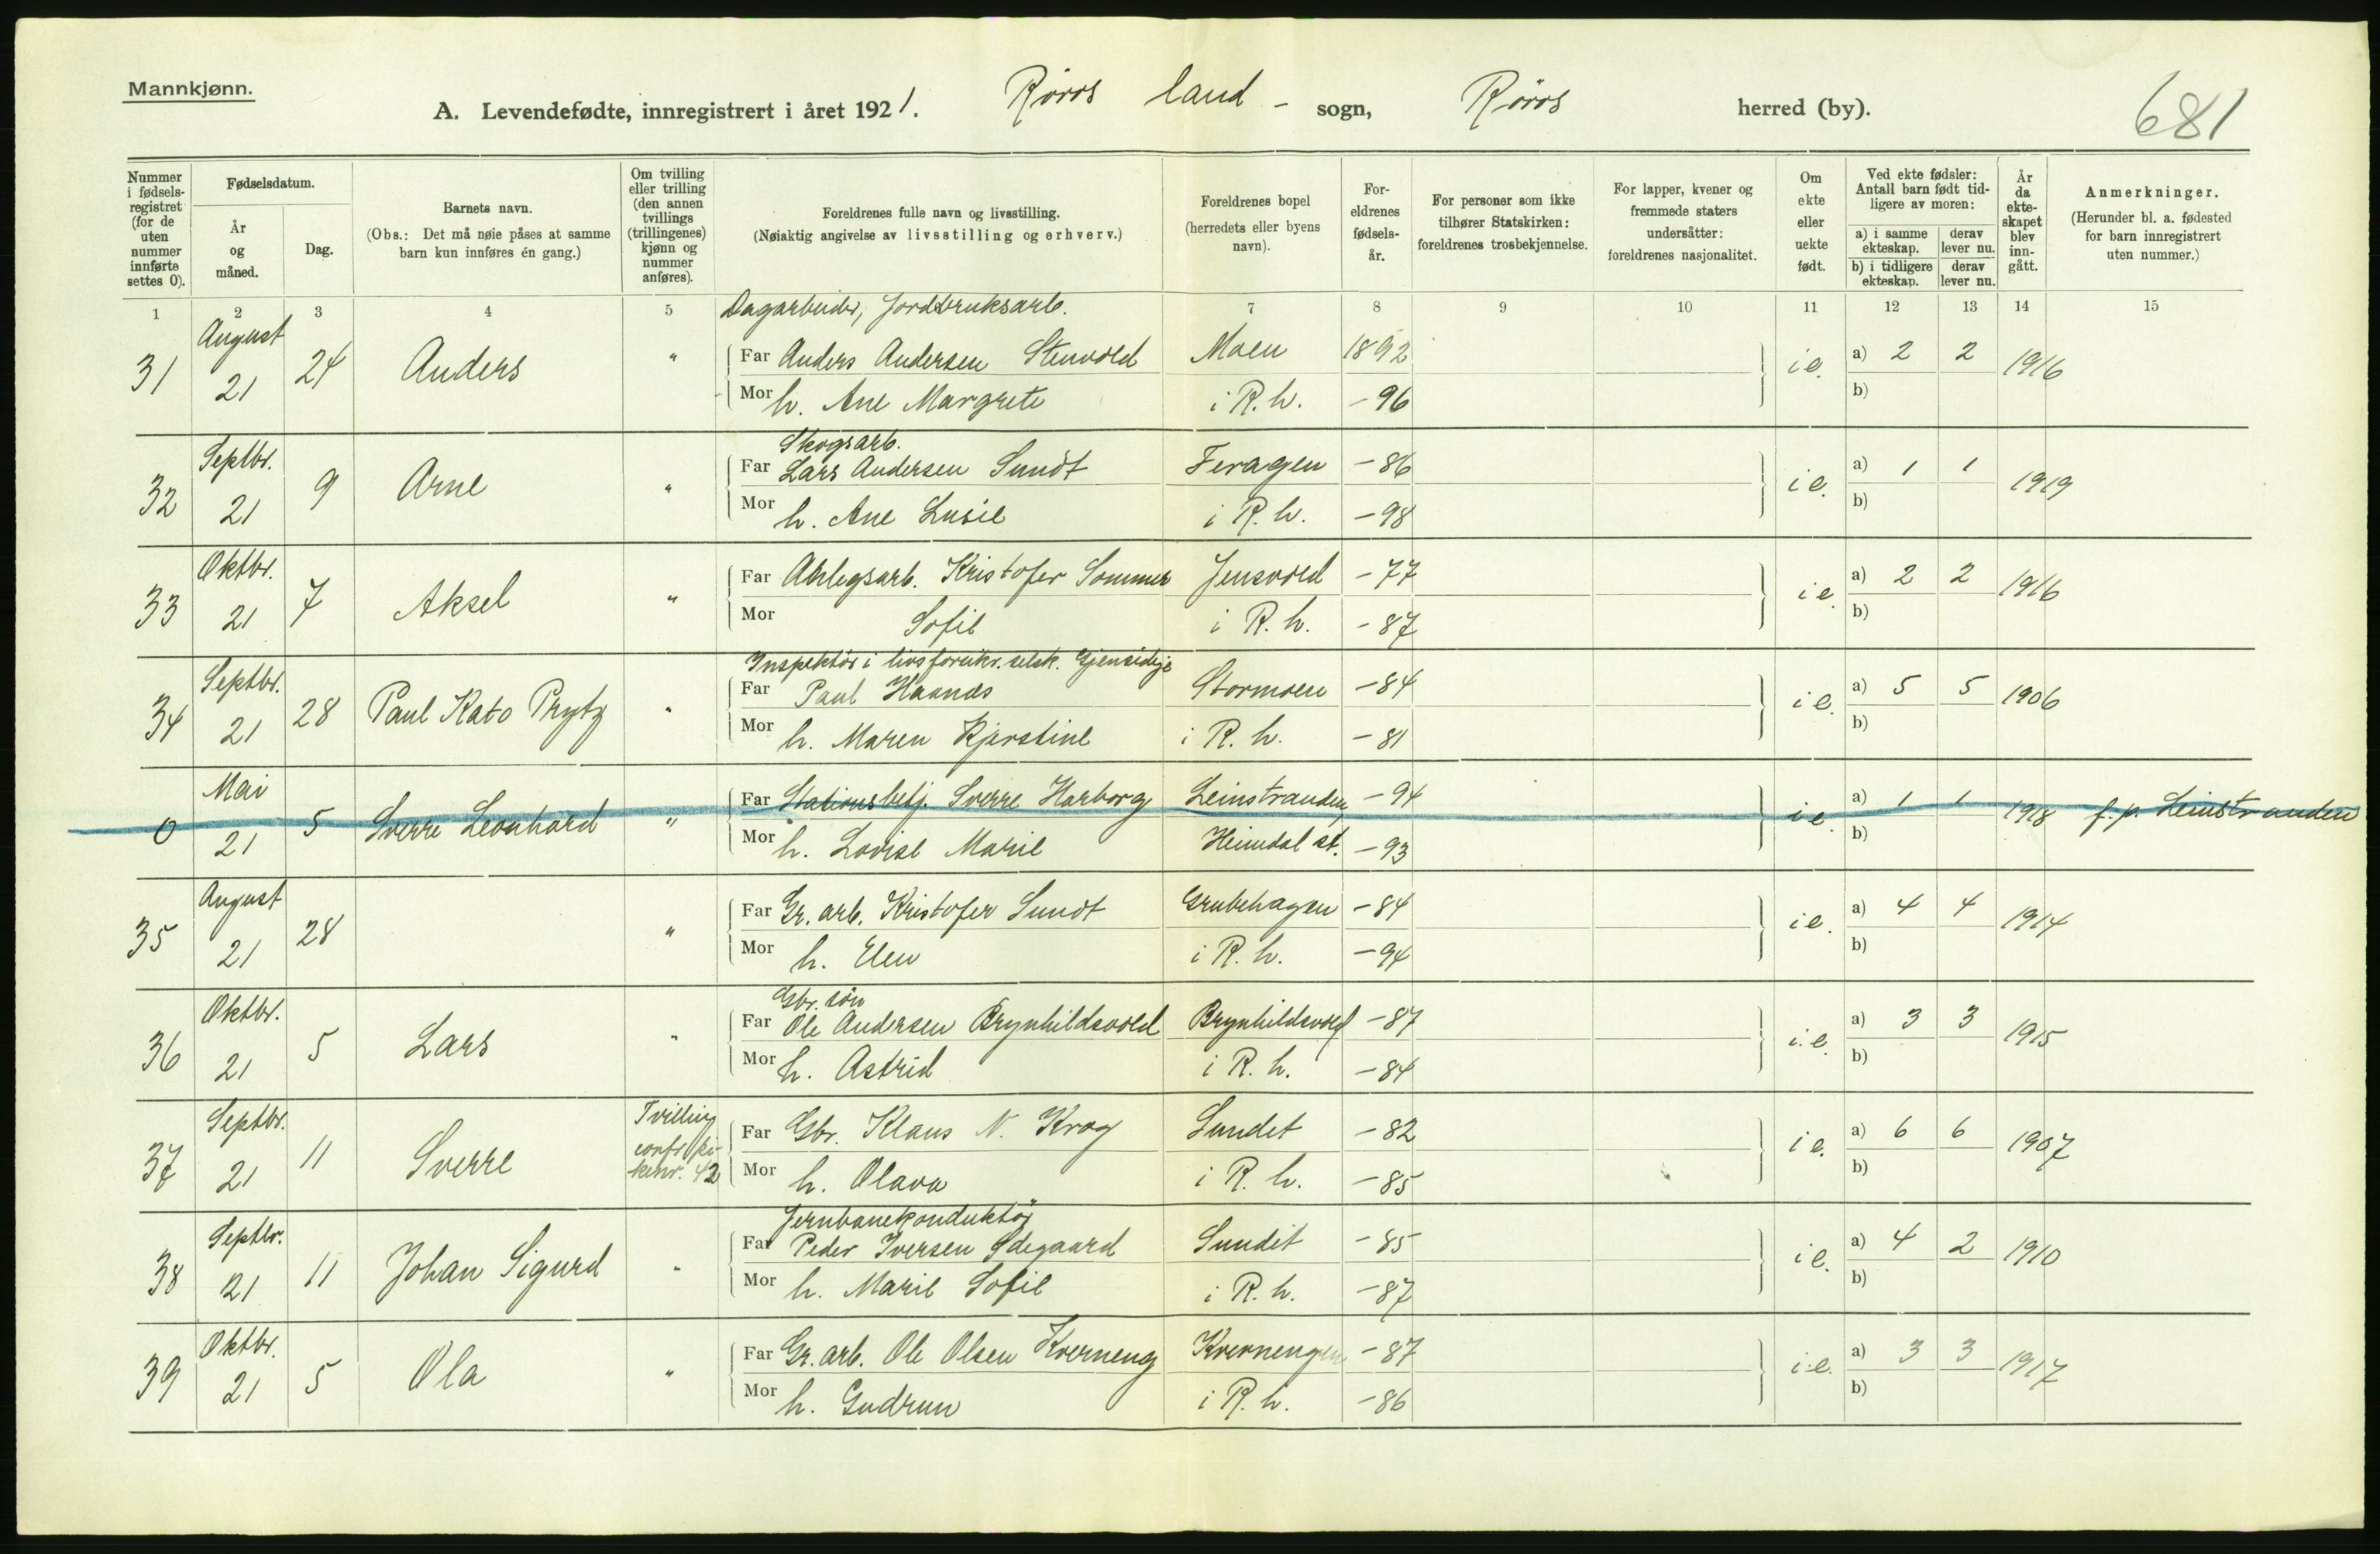 Mannkjønn.
A. Levendefødte, innregistrert i året 1921. Røros land - sogn, Røros herred (by).
681
Nummer i fødselsregistret (for de uten nummer innførte settes 0).
Fødselsdatum.
År og måned.
Dag.
Barnets navn.
(Obs.: Det må nøie påses at samme barn kun innføres én gang.)
Om tvilling eller trilling (den annen tvillings (trillingenes) kjønn og nummer anføres).
Foreldrenes fulle navn og livsstilling.
(Nøiaktig angivelse av livsstilling og erhverv.)
Foreldrenes bopel (herredets eller byens navn).
Foreldrenes fødselsår.
For personer som ikke tilhører Statskirken: foreldrenes trosbekjennelse.
For lapper, kvener og fremmede staters undersåtter: foreldrenes nasjonalitet.
Om ekte eller uekte født.
Ved ekte fødsler: Antall barn født tidligere av moren:
a) i samme ekteskap. derav lever nu.
b) i tidligere ekteskap. derav lever nu.
År da ekteskapet blev inngått.
Anmerkninger.
(Herunder bl. a. fødested for barn innregistrert uten nummer.)
1 2 3 4 5 7 8 9 10 11 12 13 14 15
Dagarbeider, Jordbruksarb.
31 August 21 24 Anders " Far Anders Andersen Stenvold Moen 1892 i e. a) 2 2 1916
Mor h. Ane Margrete i R. h. -96 b)
Skogsarb.
32 Septbr. 21 9 Arne " Far Lars Andersen Sundt Feragen -86 i e. a) 1 1 1919
Mor h. Ane Lusie i R. h. -98 b)
33 Oktbr. 21 7 Aksel " Far Anlegsarb. Kristofer Sommer Jensvold -77 i e. a) 2 2 1916
Mor Sofie i R. h. -87 b)
Inspektør i livsforsikr. selsk. Gjensidige
34 Septbr. 21 28 Paul Kato Prytz " Far Paul Haanæs Stormoen -84 i e. a) 5 5 1906
Mor h. Maren Kjerstine i R. h. -81 b)
0 Mai 21 5 Sverre Leonhard " Far Stationsbetj. Sverre Harborg Leinstranden, -94 i e. a) 1 1 1918 f. p. Leinstranden
Mor h. Lovise Marie Heimdal st. -93 b)
35 August 21 28 " Far Gr. arb. Kristofer Sundt Grubehagen -84 i e. a) 4 4 1914
Mor h. Elen i R. h. -94 b)
Gbr. søn
36 Oktbr. 21 5 Lars " Far Ole Andersen Brynhildsvold Brynhildsvold -87 i. e. a) 3 3 1915
Mor h. Astrid i R. h. -84 b)
37 Septbr. 21 11 Sverre Tvilling confr. pikenr. 42 Far Gbr. Klaus N. Krog Sundet -82 i e. a) 6 6 1907
Mor h. Olava i R. h. -85 b)
Jernbanekonduktør
38 Septbr. 21 11 Johan Sigurd " Far Peder Iversen Ødegaard Sundet -85 i e. a) 4 2 1910
Mor h. Marie Sofie i R. h. -87 b)
39 Oktbr. 21 5 Ola " Far Gr. arb. Ole Olsen Kverneng Kvernengen -87 i. e. a) 3 3 1917
Mor h. Gudrun i R. h. -86 b)